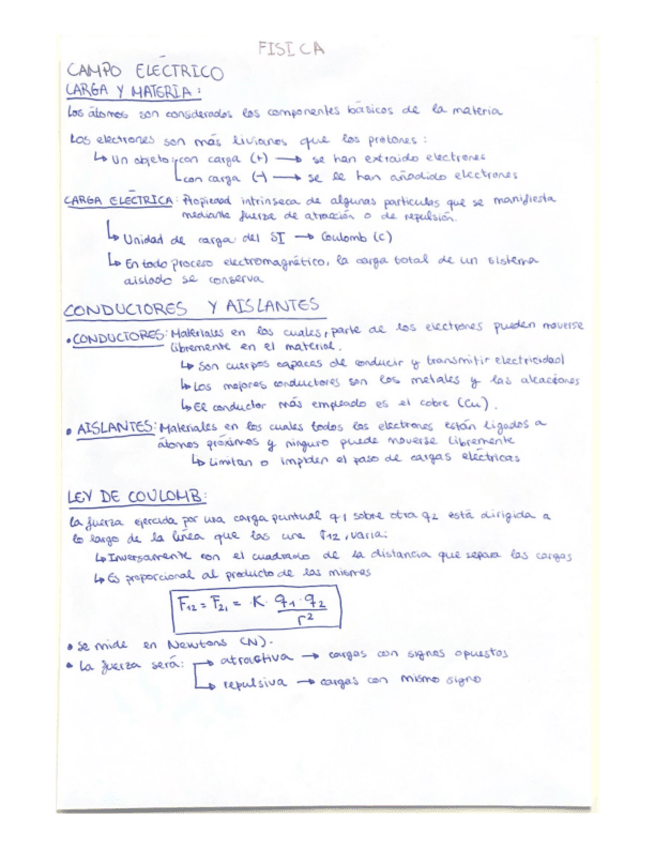 FISICA
CAMPO ELÉCTRICO
CARGA Y MATERIA:
Los átomos son considerados los componentes básicos de la materia
Los electrones son más livianos que los protones:
↳ Un objeto con carga (+) → se han extraido electrones
con carga (-) → se le han añadido electrones
CARGA ELÉCTRICA: Propiedad intrínseca de algunas partículas que se manifiesta
mediante fuerza de atracción o de repulsión.
↳ Unidad de carga del SI → Coulomb (C)
↳ En todo proceso electromagnético, la carga total de un sistema
aislado se conserva
CONDUCTORES Y AISLANTES
• CONDUCTORES: Materiales en los cuales, parte de los electrones pueden moverse
libremente en el material.
↳ Son cuerpos capaces de conducir y transmitir electricidad
↳ Los mejores conductores son los metales y las aleaciones
↳ El conductor más empleado es el cobre (Cu).
• AISLANTES: Materiales en los cuales todos los electrones están ligados a
átomos próximos y ninguno puede moverse libremente
↳ Limitan o impiden el paso de cargas eléctricas
LEY DE COULOMB:
La fuerza ejercida por una carga puntual q1 sobre otra q2 está dirigida a
lo largo de la línea que las une r̂12, varia:
↳ Inversamente con el cuadrado de la distancia que separa las cargas
↳ Es proporcional al producto de las mismas
F12 = F21 = K · q1 · q2 / r²
• Se mide en Newtons (N).
• La fuerza será: → atractiva → cargas con signos opuestos
→ repulsiva → cargas con mismo signo